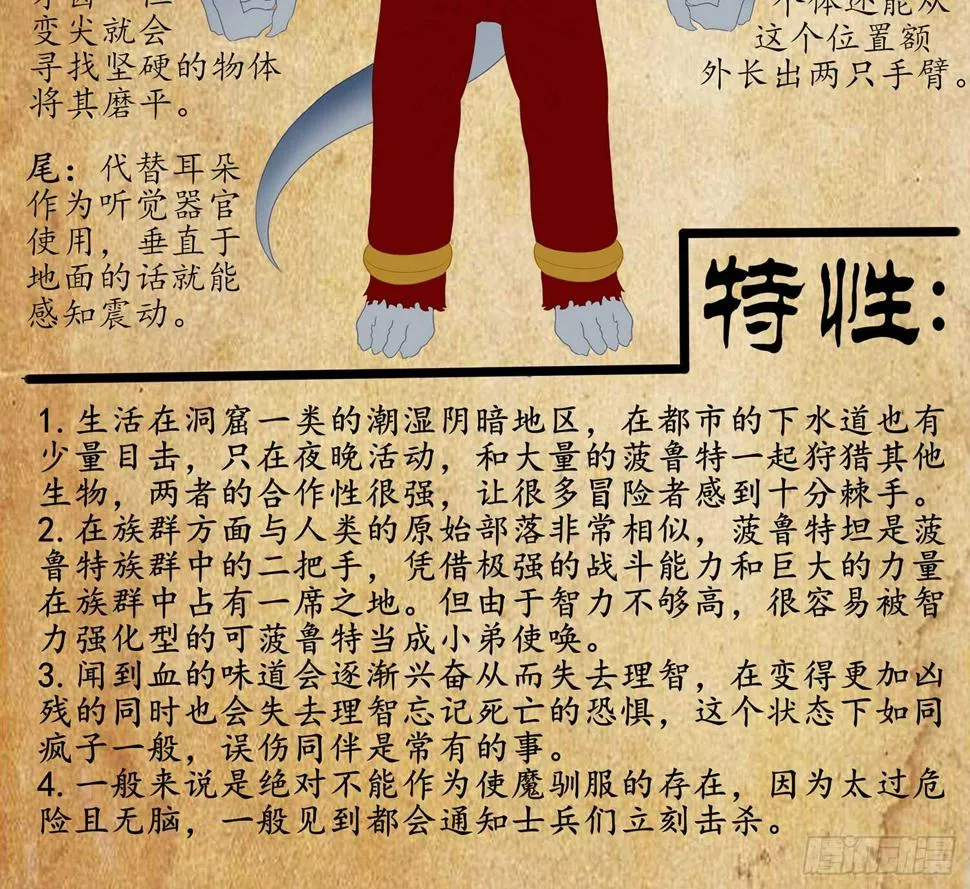 变尖就会
寻找坚硬的物体
将其磨平。
个体还能从
这个位置额
外长出两只手臂。
尾：代替耳朵
作为听觉器官
使用，垂直于
地面的话就能
感知震动。
特性：
1. 生活在洞窟一类的潮湿阴暗地区，在都市的下水道也有
少量目击，只在夜晚活动，和大量的菠鲁特一起狩猎其他
生物，两者的合作性很强，让很多冒险者感到十分棘手。
2. 在族群方面与人类的原始部落非常相似，菠鲁特坦是菠
鲁特族群中的二把手，凭借极强的战斗能力和巨大的力量
在族群中占有一席之地。但由于智力不够高，很容易被智
力强化型的可菠鲁特当成小弟使唤。
3. 闻到血的味道会逐渐兴奋从而失去理智，在变得更加凶
残的同时也会失去理智忘记死亡的恐惧，这个状态下如同
疯子一般，误伤同伴是常有的事。
4. 一般来说是绝对不能作为使魔驯服的存在，因为太过危
险且无脑，一般见到都会通知士兵们立刻击杀。
腾讯动漫